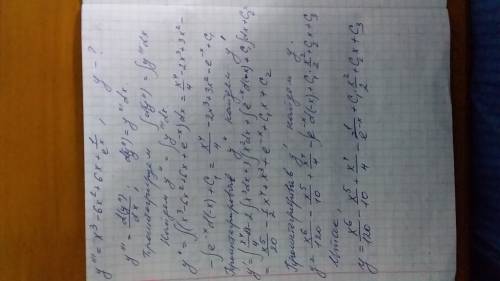 y''' = x³ - 6x² + 6x + 1/eˣ ; y - ?
y''' = d(y'')/dx ; d(y'') = y''' dx
Проинтегрируем ∫d(y'') = ∫y''' dx
Найдем y'' = ∫y''' dx
y'' = ∫(x³ - 6x² + 6x + e⁻ˣ) dx = x⁴/4 - 2x³ + 3x² -
- ∫e⁻ˣ d(-x) + C₁ = x⁴/4 - 2x³ + 3x² - e⁻ˣ + C₁
Проинтегрировав y'', найдем y'
y' = ∫x⁴/4 dx - 2∫x³dx + 3∫x²dx + ∫e⁻ˣ d(-x) + C₁∫dx + C₂
= x⁵/20 - 1/2 x⁴ + x³ + e⁻ˣ + C₁x + C₂
Проинтегрировав y', найдем y.
y = x⁶/120 - x⁵/10 + x⁴/4 - ∫e⁻ˣ d(-x) + C₁ x²/2 + C₂x + C₃
Итак:
y = x⁶/120 - x⁵/10 + x⁴/4 - 1/eˣ + C₁ x²/2 + C₂x + C₃